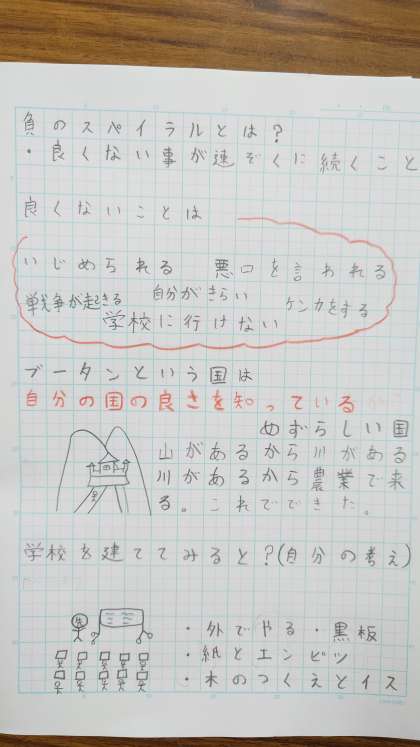 負のスペイラルとは?
・良くない事が連ぞくに続くこと
良くないことは
いじめられる 悪口を言われる
戦争が起きる 自分がきらい ケンカをする
学校に行けない
ブータンという国は
自分の国の良さを知っている
めずらしい国
山があるから川がある
川があるから農業で来
る。これでできた。
学校を建ててみると?(自分の考え)
・外でやる ・黒板
・紙とエンピツ
・木のつくえとイス